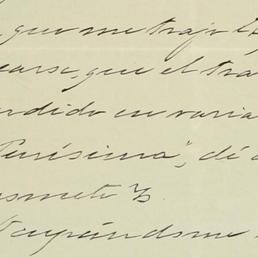 que me trajo
carse, que el tra
rdido en varia
Purísima", dé
smeto
cupándome